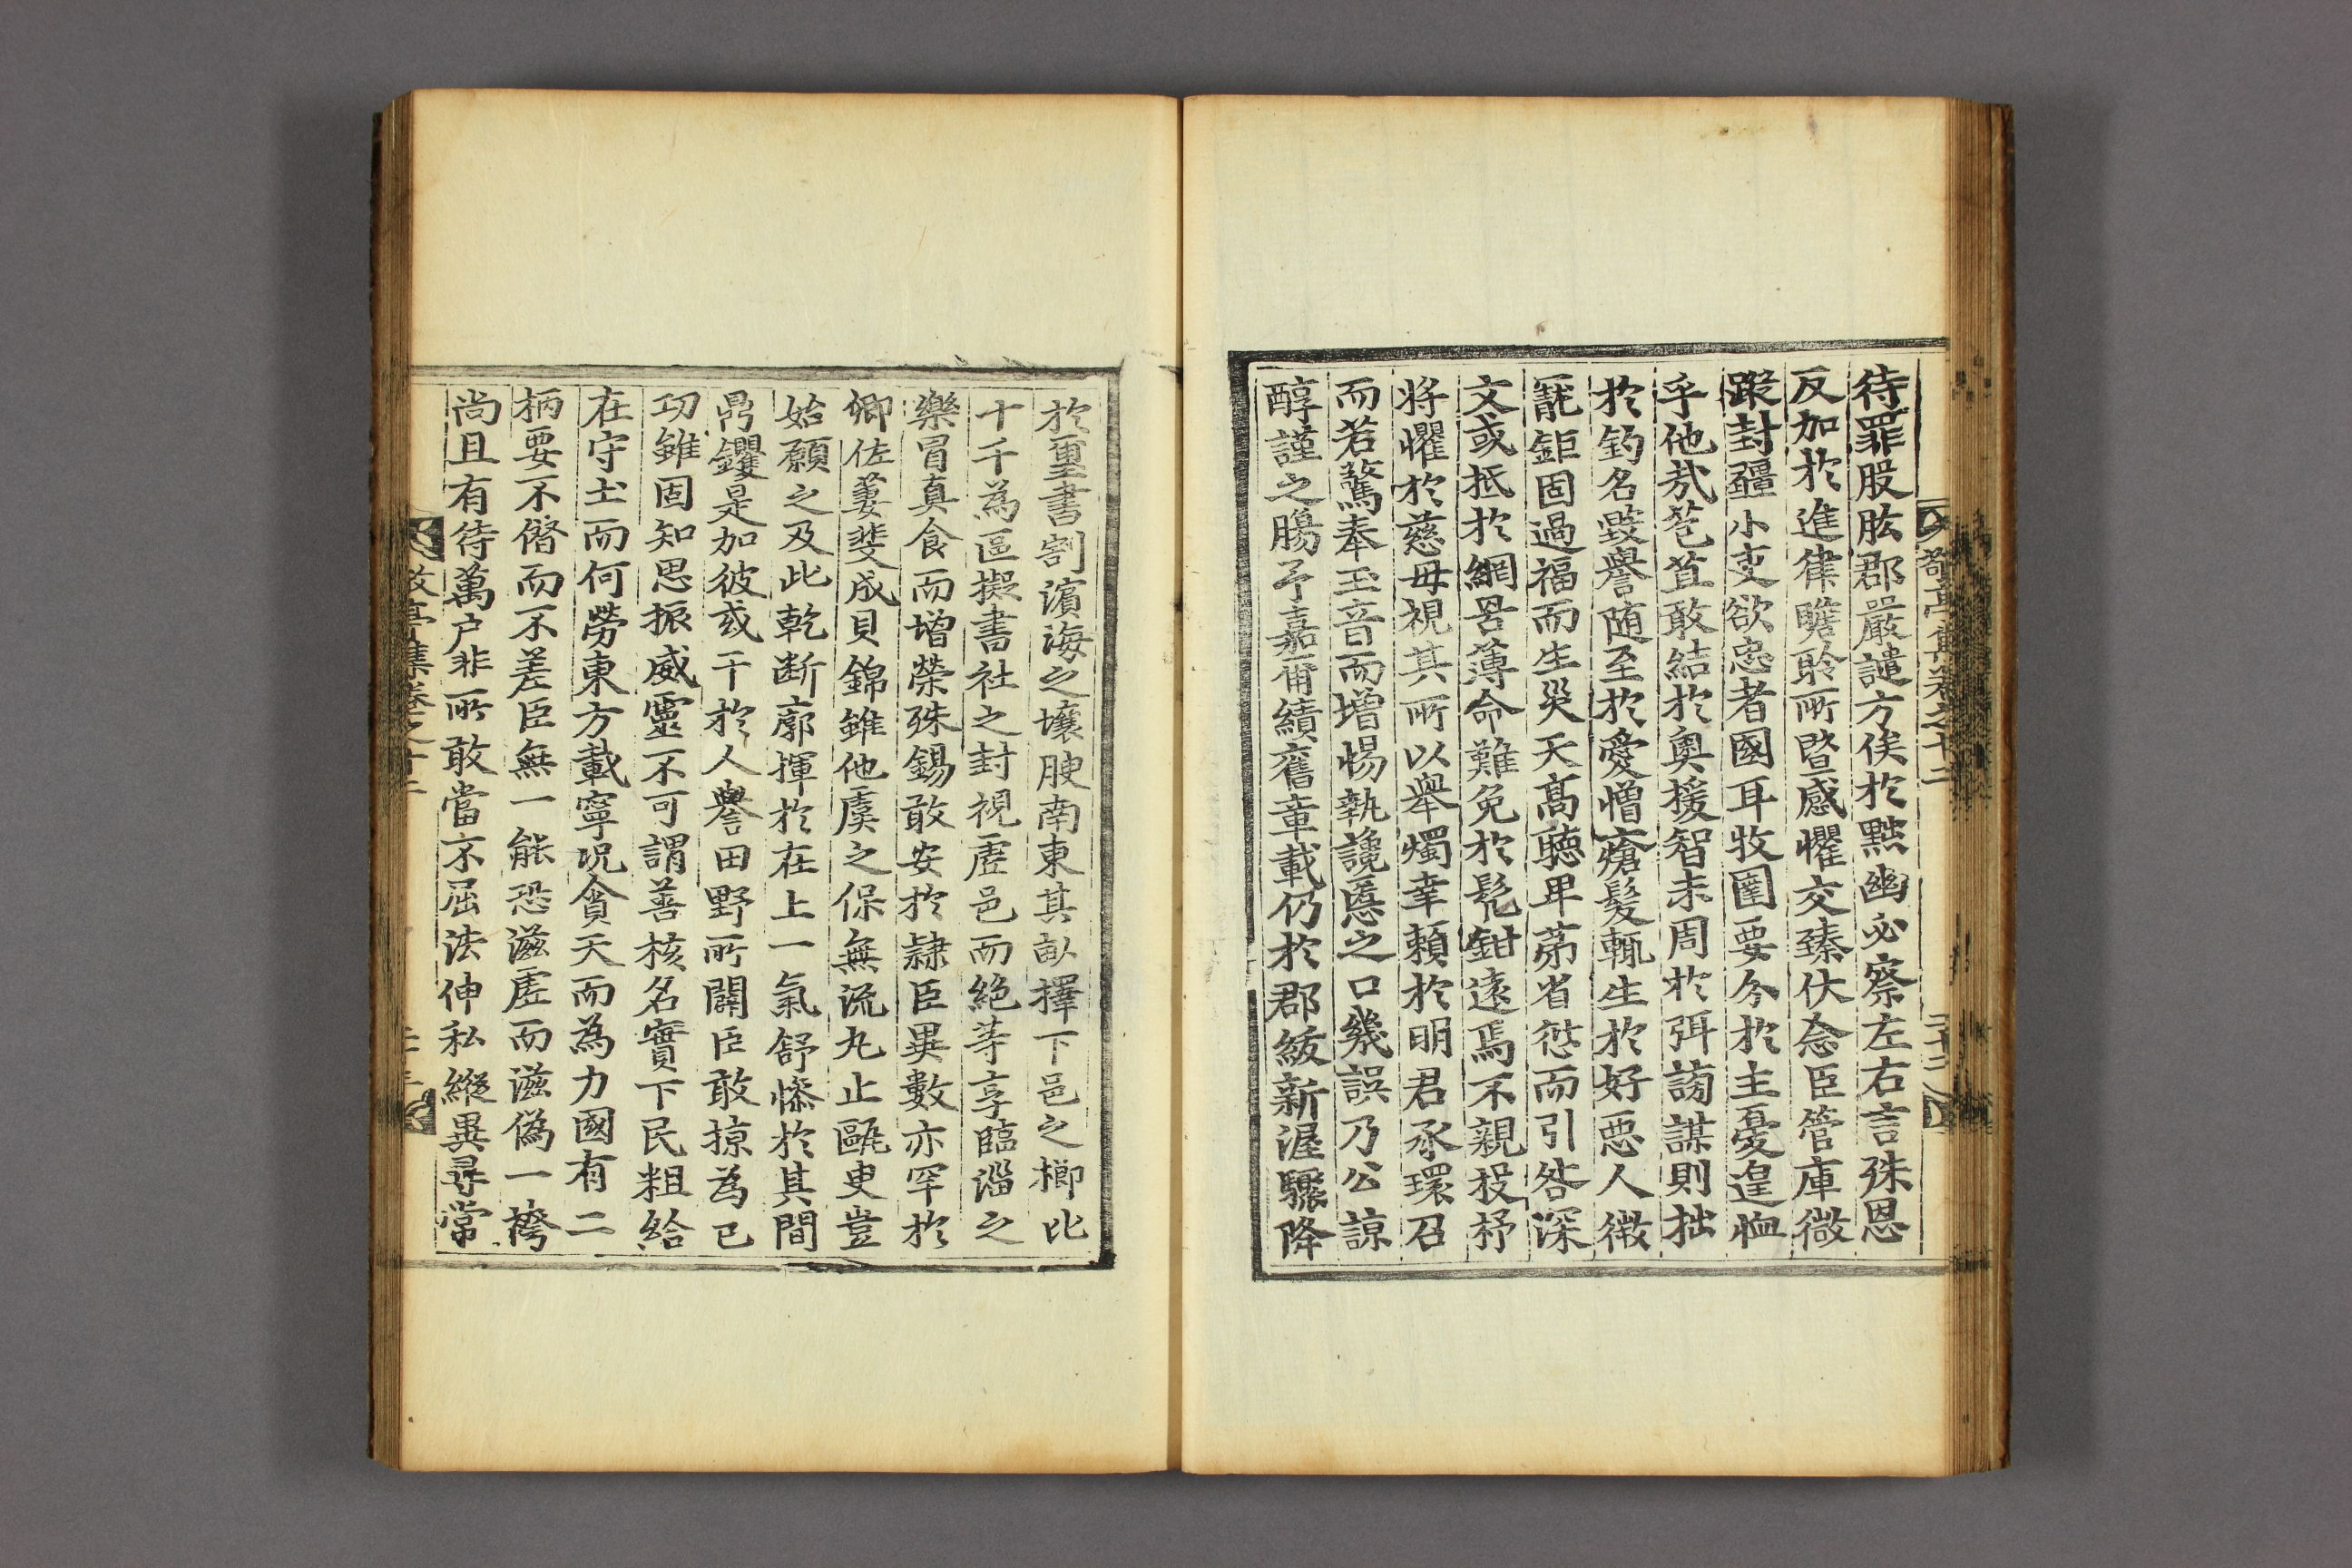 敬亭集卷之十二
二十二
待罪股肱郡嚴譴方俟於黜幽必察左右言殊恩
反加於進律瞻聆所曁感懼交臻伏念臣管庫微
蹤封疆小吏欲忠者國耳牧圉要今於主憂遑恤
乎他㢤苞苴敢結於奧援智未周於弭謗謀則拙
於釣名毀譽随至於愛憎瘡髮輒生於好惡人微
寵鉅固過福而生災天高聽卑第省愆而引咎深
文或抵於網罟薄命難免於髡鉗遠焉不親投杼
將懼於慈母視其所以舉燭幸賴於明君承環召
而若驚奉玉音而增惕執讒慝之口幾誤乃公諒
醇謹之膓予嘉甭績舊章載仍於郡紱新渥驟降
於璽書割濵海之壤腴南東其畝擇下邑之櫛比
十千為區擬書社之封視虛邑而絕等享臨淄之
樂冒真食而增榮殊錫敢安於隷臣異數亦罕於
卿佐萋斐成貝錦雖他虞之保無流丸止甌臾豈
始願之及此乾斷廓揮於在上一氣舒慘於其間
鼎钁是加彼或干於人譽田野所闢臣敢掠為已
功雖固知思振威靈不可謂善核名實下民粗給
在守土而何勞東方載寧况貪天而為力國有二
柄要不僭而不差臣無一能恐滋虛而滋僞一袴
尚且有待萬户非所敢當不屈法伸私縱異尋常
敬亭集卷之十二